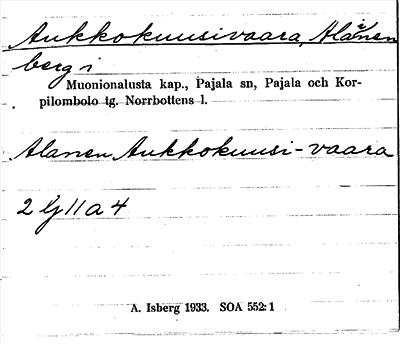 Aukkokuusivaara, Alanen
berg i
Muonionalusta kap., Pajala sn, Pajala och Kor-
pilombolo tg. Norrbottens l.
Alanen Aukkokuusi-vaara
2 lj 11 a 4
A. Isberg 1933. SOA 552:1